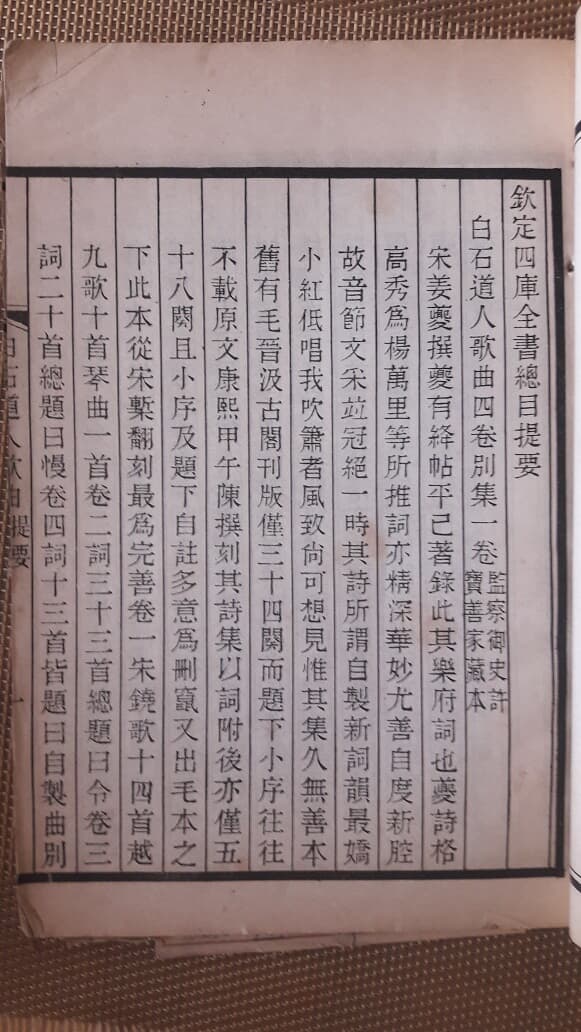 欽定四庫全書總目提要
白石道人歌曲四卷別集一卷監察御史許寶善家藏本
宋姜夔撰夔有絳帖平已著錄此其樂府詞也夔詩格
高秀爲楊萬里等所推詞亦精深華妙尤善自度新腔
故音節文采竝冠絕一時其詩所謂自製新詞韻最嬌
小紅低唱我吹簫者風致尙可想見惟其集久無善本
舊有毛晉汲古閣刊版僅三十四闋而題下小序往往
不載原文康熙甲午陳撰刻其詩集以詞附後亦僅五
十八闋且小序及題下自註多意爲刪竄又出毛本之
下此本從宋槧翻刻最爲完善卷一宋鐃歌十四首越
九歌十首琴曲一首卷二詞三十三首總題曰令卷三
詞二十首總題曰慢卷四詞十三首皆題曰自製曲別
白石道人歌曲提要
一